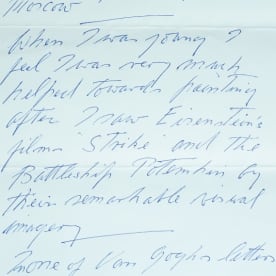 Moscow
When I was young I
feel I was very much
helped towards painting
after I saw Eisenstein's
films 'Strike' and the
Battleship Potemkin by
their remarkable visual
imagery
none of Van Gogh's letters